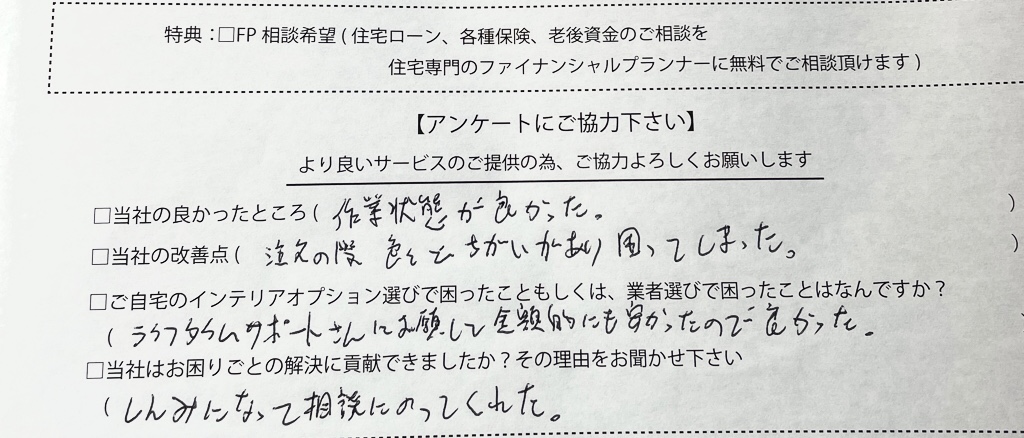 特典：□FP 相談希望 ( 住宅ローン、各種保険、老後資金のご相談を
住宅専門のファイナンシャルプランナーに無料でご相談頂けます )
【アンケートにご協力下さい】
より良いサービスのご提供の為、ご協力よろしくお願いします
□当社の良かったところ ( 作業状態が良かった。 )
□当社の改善点 ( 注文の際 色々とちがいがあり 困ってしまった。 )
□ご自宅のインテリアオプション選びで困ったこともしくは、業者選びで困ったことはなんですか？
( ライフタイムサポートさんにお願して金額的にも安かったので良かった。
□当社はお困りごとの解決に貢献できましたか？その理由をお聞かせ下さい
( しんみになって相談にのってくれた。